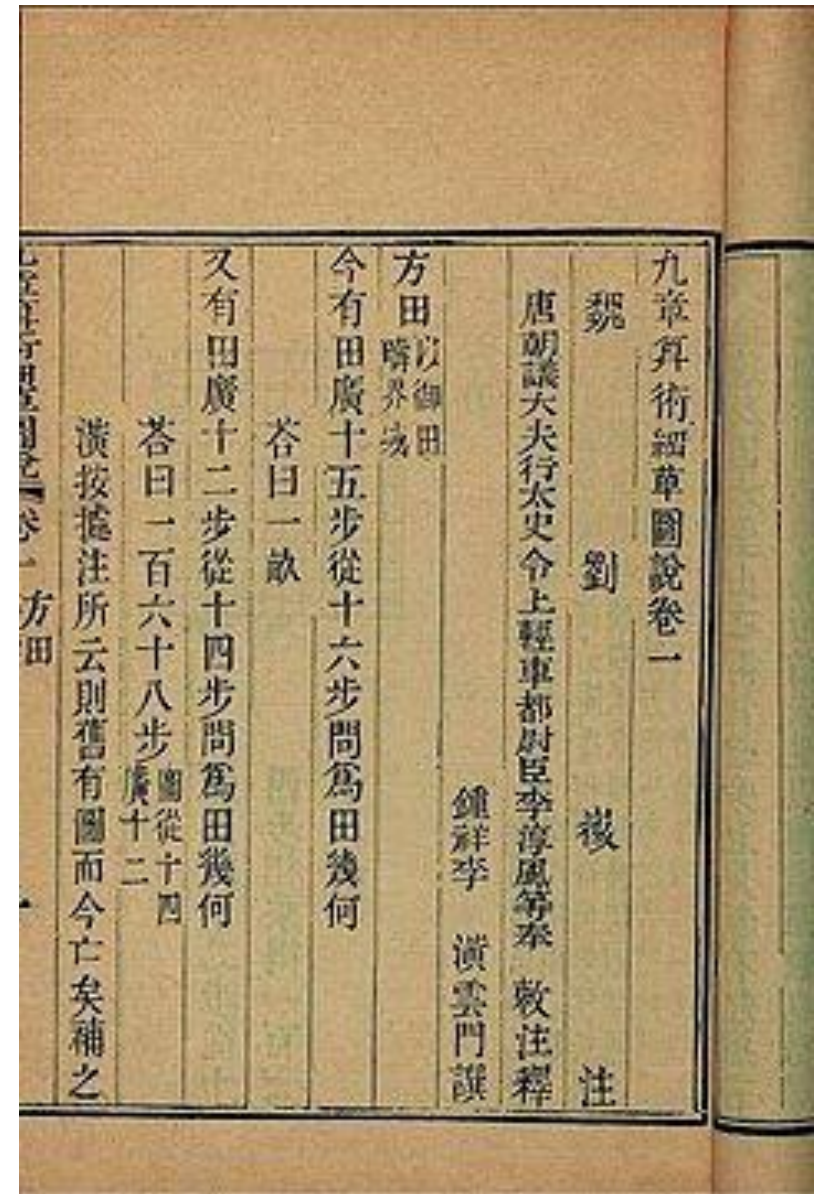 九章算術細草圖說卷一
魏劉徽注
唐朝議大夫行太史令上輕車都尉臣李淳風等奉敕注釋
鍾祥李潢雲門譔
方田以御田疇界域
今有田廣十五步從十六步問爲田幾何
荅曰一畝
又有田廣十二步從十四步問爲田幾何
荅曰一百六十八步圖從十四廣十二
潢按據注所云則舊有圖而今亡矣補之
九章算術細草圖說卷一方田